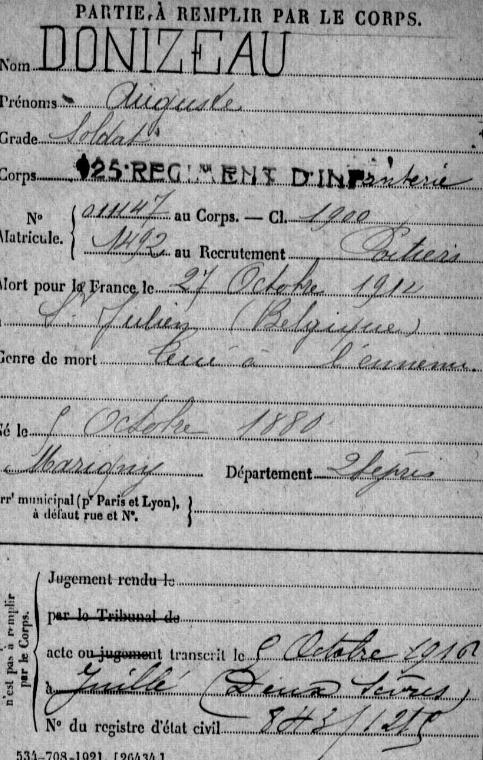 PARTIE À REMPLIR PAR LE CORPS.
Nom DONIZEAU
Prénoms Auguste
Grade Soldat
Corps 125 REGIMENT D'INFanterie
N° 011147 au Corps. — Cl. 1900
Matricule. 1492 au Recrutement Poitiers
Mort pour la France le 27 Octobre 191
St Julien (Belgique)
Genre de mort tué à l'ennemi
Né le Octobre 1880
Marigny Département 2 Sèvres
arrt municipal (pr Paris et Lyon),
à défaut rue et N°.
n'est pas à remplir
par le Corps.
Jugement rendu le
par le Tribunal de
acte ou jugement transcrit le Octobre 1916
à Juillé (Deux Sèvres)
N° du registre d'état civil 843/
534-708-1921. [26434.]